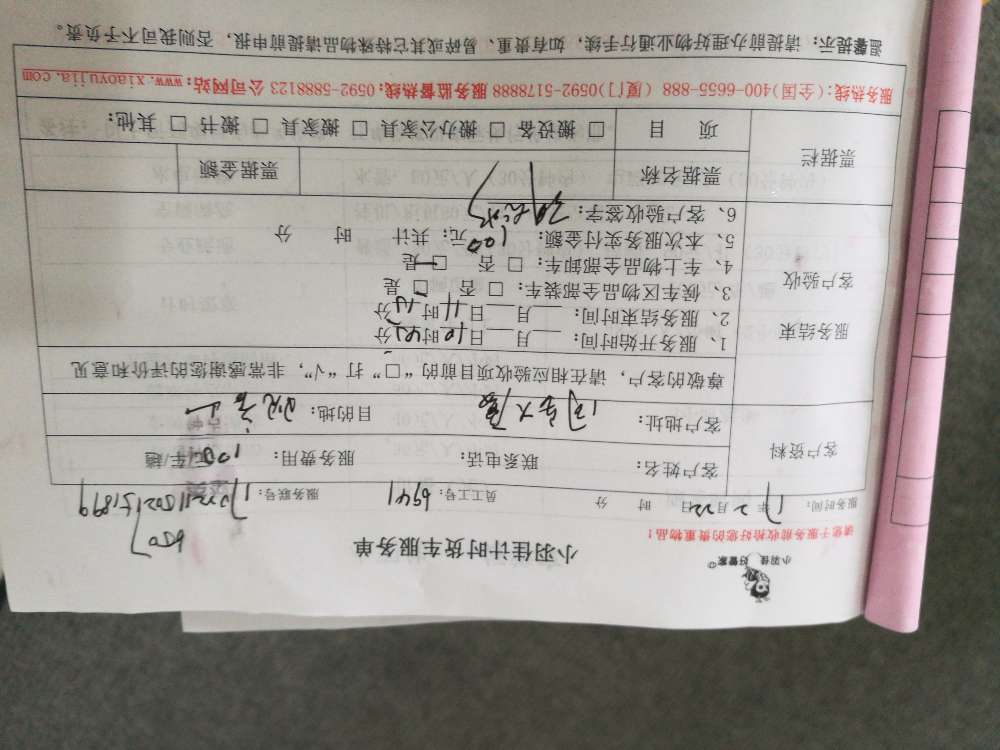 小羽佳 好管家
小羽佳计时货车服务单
请您于服务前收拾好您的贵重物品！
服务时间： 17年2月22日 时 分 员工号： 6941 服务联号：
客户资料
客户姓名： 联系电话： 服务费用： 100元/车/趟
客户地址： 大厦 目的地：
尊敬的客户，请在相应验收项目前的“□”打“√”，非常感谢您的评价和意见
服务结束
客户验收
1、服务开始时间： 月 日 10时42分
2、服务结束时间： 月 日 11时12分
3、候车区物品全部装车：□ 否 □ 是
4、车上物品全部卸车：□ 否 □ 是
5、本次服务实付金额： 100 元；共计 时 分
6、客户验收签字：
票据栏
票据名称 票据金额
项 目 □ 搬设备 □ 搬办公家具 □ 搬家具 □ 搬书 □ 其他：
服务热线：(全国)400-6655-888 (厦门)0592-5178888 服务监督热线：0592-5888123 公司网站：www.xiaoyujia.com
温馨提示：请提前办理好物业通行手续，如有贵重、易碎或其它特殊物品请提前申报，否则我司不予负责。